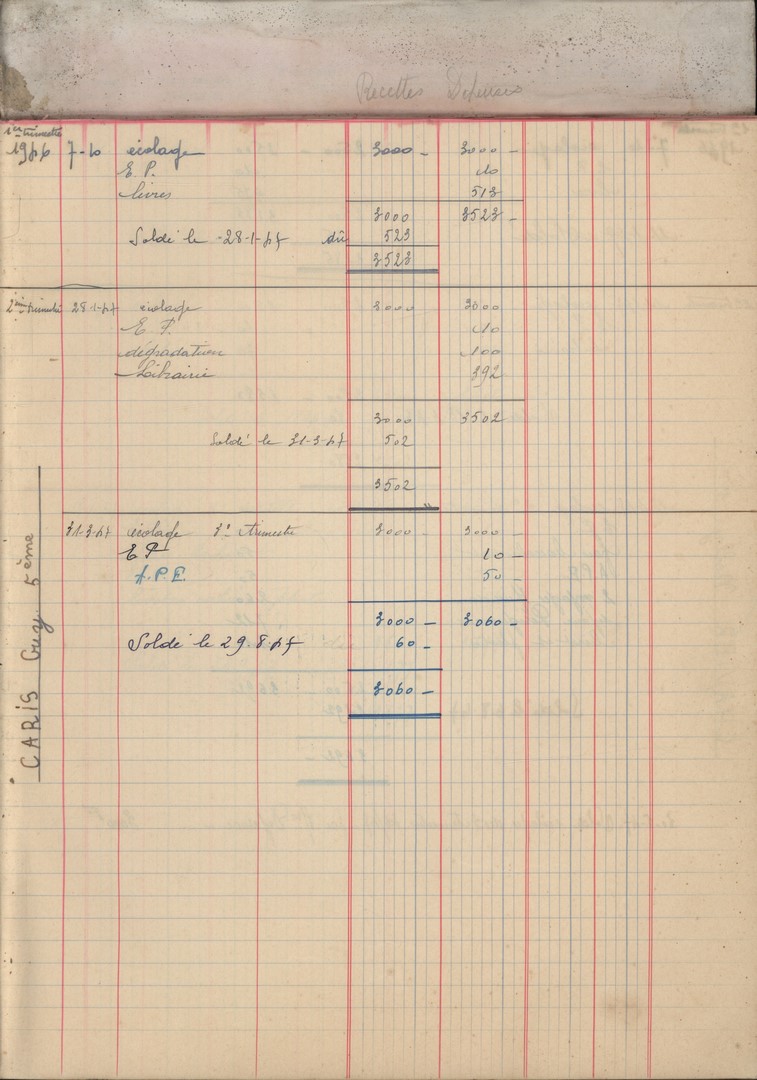 Recettes Dépenses
1er trimestre
1946 7-10 écolage 3000 - 3000 -
E. P. 10
livres 513
3000 3523 -
Soldé le -28-1-47 dû 523
3523
2ème trimestre 28-1-47 écolage 3000 3000
E P. 10
dégradation 100
Librairie 392
3000 3502
Soldé le 31-3-47 502
3502
31-3-47 écolage 3e trimestre 3000 - 3000 -
E P 10 -
A.P.E. 50 -
3000 - 3060 -
Soldé le 29.8.47 60 -
3060 -
CARIS Guy 5ème